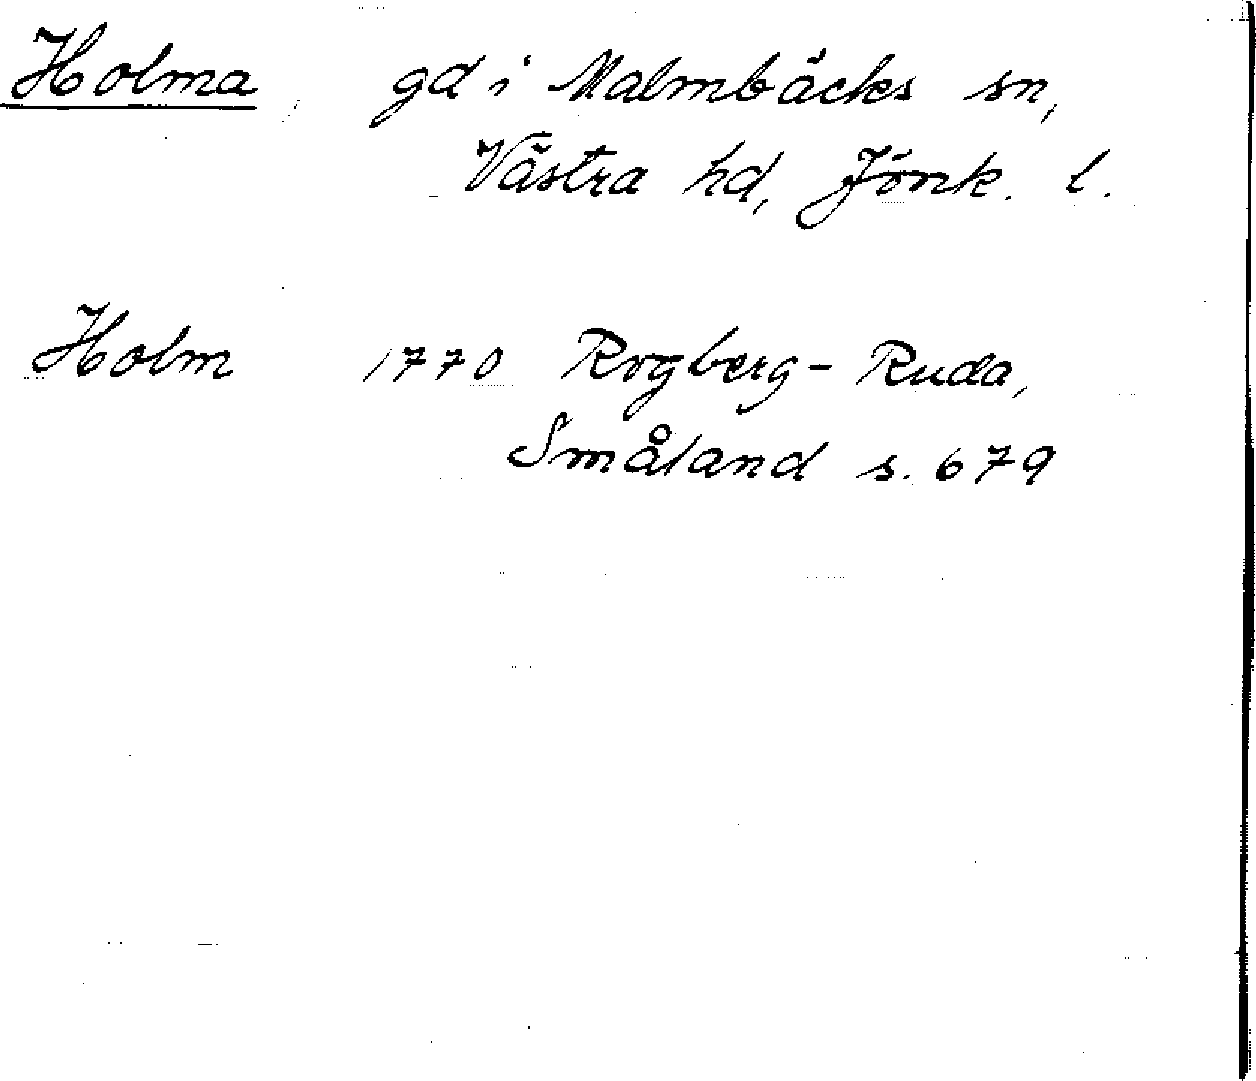 Holma, gd i Malmbäcks sn,
Västra hd, Jönk. l.
Holm 1770 Rogberg-Ruda,
Småland s. 679